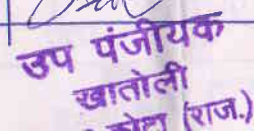 उप पंजीयक
खातोली
कोटा (राज.)